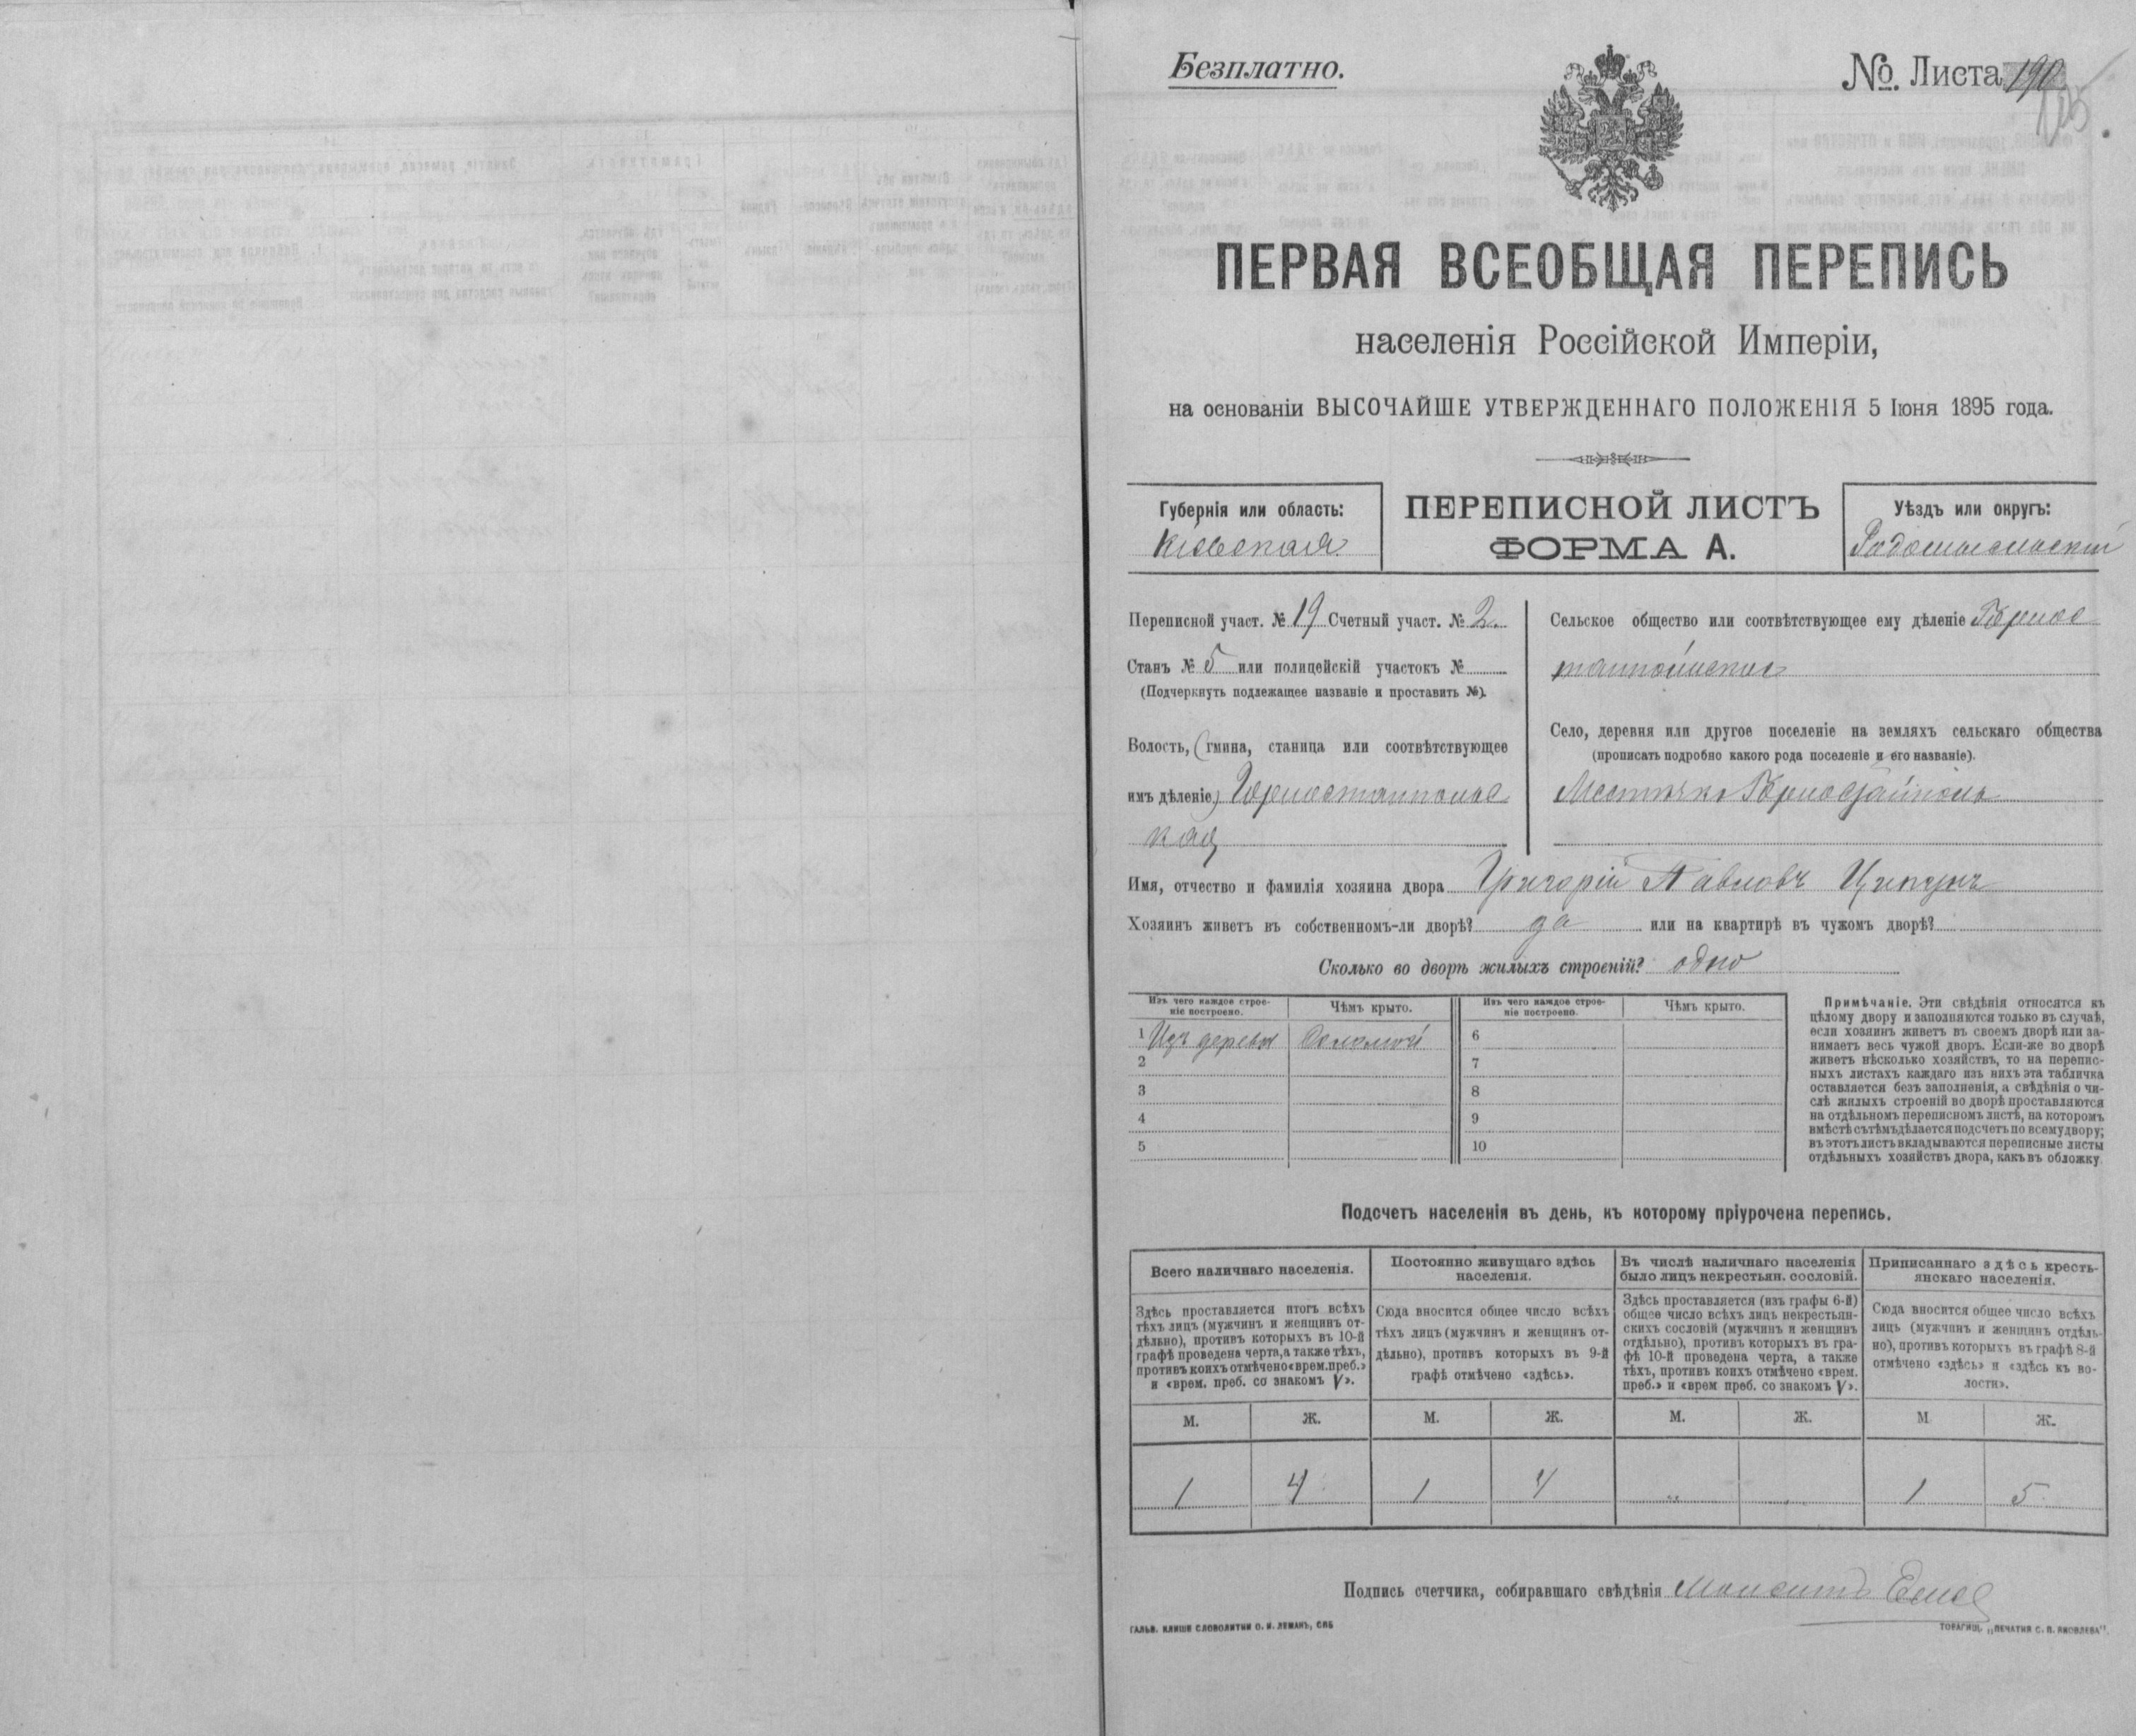 Безплатно.
№ Листа 190
ПЕРВАЯ ВСЕОБЩАЯ ПЕРЕПИСЬ
населенія Россійской Имперіи,
на основаніи ВЫСОЧАЙШЕ УТВЕРЖДЕННАГО ПОЛОЖЕНІЯ 5 Іюня 1895 года.
Губернія или область:
Кіевская
ПЕРЕПИСНОЙ ЛИСТЪ
ФОРМА А.
Уѣздъ или округъ:
Радомысльскій
Переписной участ. № 19 Счетный участ. № 2.
Станъ № 5 или полицейскій участокъ №
(Подчеркнуть подлежащее названіе и проставить №).
Волость, (гмина, станица или соотвѣтствующее
имъ дѣленіе) Горностайпольс
кая
Сельское общество или соотвѣтствующее ему дѣленіе Горнос
тайпольское
Село, деревня или другое поселеніе на земляхъ сельскаго общества
(прописать подробно какого рода поселеніе и его названіе).
Местечко Горностайполь
Имя, отчество и фамилія хозяина двора Григорій Павловъ Ципунъ
Хозяинъ живетъ въ собственномъ-ли дворѣ? да или на квартирѣ въ чужомъ дворѣ?
Сколько во дворѣ жилыхъ строеній? одно
Изъ чего каждое строе-
ніе построено.
Чѣмъ крыто.
Изъ чего каждое строе-
ніе построено.
Чѣмъ крыто.
1 Изъ дерева Соломой 6
2 7
3 8
4 9
5 10
Примѣчаніе. Эти свѣдѣнія относятся къ
цѣлому двору и заполняются только въ случаѣ,
если хозяинъ живетъ въ своемъ дворѣ или за-
нимаетъ весь чужой дворъ. Если-же во дворѣ
живетъ нѣсколько хозяйствъ, то на перепис-
ныхъ листахъ каждаго изъ нихъ эта табличка
оставляется безъ заполненія, а свѣдѣнія о чи-
слѣ жилыхъ строеній во дворѣ проставляются
на отдѣльномъ переписномъ листѣ, на которомъ
вмѣстѣ съ тѣмъ дѣлается подсчетъ по всему двору;
въ этотъ листъ вкладываются переписные листы
отдѣльныхъ хозяйствъ двора, какъ въ обложку
Подсчетъ населенія въ день, къ которому пріурочена перепись.
Всего наличнаго населенія.
Здѣсь проставляется итогъ всѣхъ
тѣхъ лицъ (мужчинъ и женщинъ от-
дѣльно), противъ которыхъ въ 10-й
графѣ проведена черта, а также тѣхъ,
противъ коихъ отмѣчено «врем. преб.»
и «врем. преб. со знакомъ V».
Постоянно живущаго здѣсь
населенія.
Сюда вносится общее число всѣхъ
тѣхъ лицъ (мужчинъ и женщинъ от-
дѣльно), противъ которыхъ въ 9-й
графѣ отмѣчено «здѣсь».
Въ числѣ наличнаго населенія
было лицъ некрестьян. сословій.
Здѣсь проставляется (изъ графы 6-й)
общее число всѣхъ лицъ некрестьян-
скихъ сословій (мужчинъ и женщинъ
отдѣльно), противъ которыхъ въ гра-
фѣ 10-й проведена черта, а также
тѣхъ, противъ коихъ отмѣчено «врем.
преб.» и «врем преб. со знакомъ V».
Приписаннаго здѣсь кресть-
янскаго населенія.
Сюда вносится общее число всѣхъ
лицъ (мужчинъ и женщинъ отдѣль-
но), противъ которыхъ въ графѣ 8-й
отмѣчено «здѣсь» и «здѣсь къ во-
лости».
М. Ж. М. Ж. М. Ж. М Ж.
1 4 1 4 „ 1 5
Подпись счетчика, собиравшаго свѣдѣнія
ГАЛЬВ. КЛИШЕ СЛОВОЛИТНИ О. И. ЛЕМАНЪ, СПБ
ТОВАРИЩ. „ПЕЧАТНЯ С. П. ЯКОВЛЕВА".